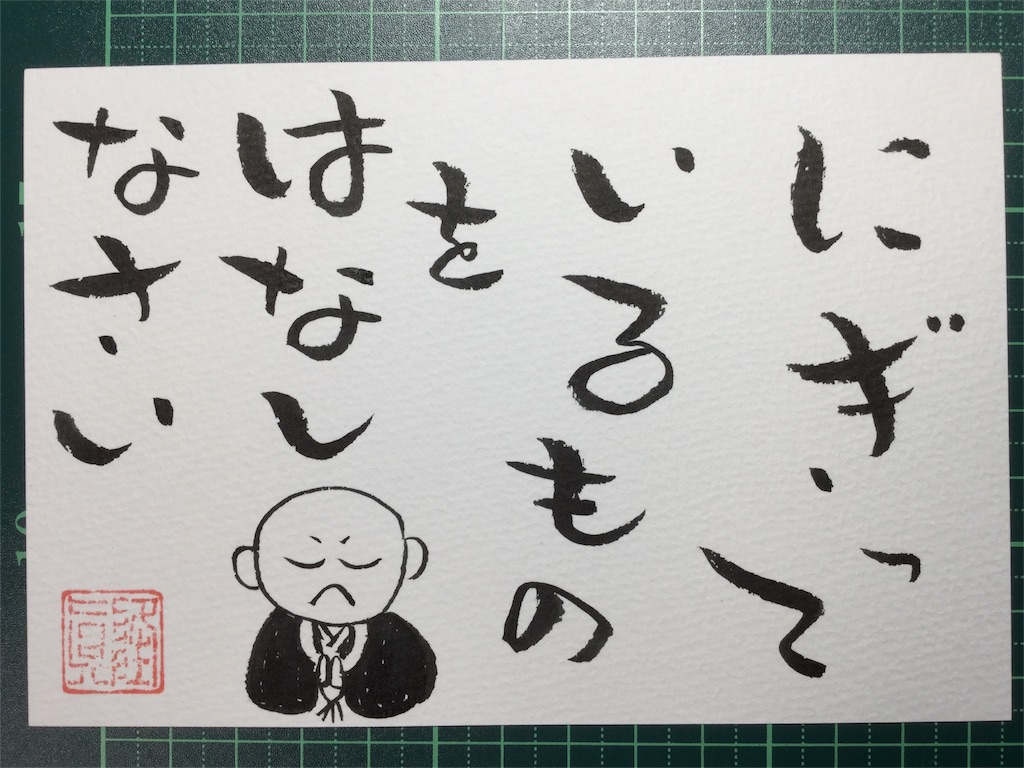 にぎって
いるもの
を
はなし
なさい